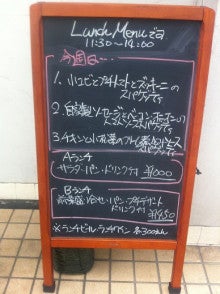 Lunch Menuです
11:30〜14:00
今週は…
1. 小エビとプチトマトとズッキーニの
スパゲッティ
2. 自家製ソーセージと
スパゲッティ
3. チキンと小松菜の
スパゲッティ
Aランチ
サラダ・パン・ドリンク付 ¥1000
Bランチ
前菜盛合せ・パン・プチデザート
ドリンク付 ¥1450
※ランチビール・ランチワイン 各300えん